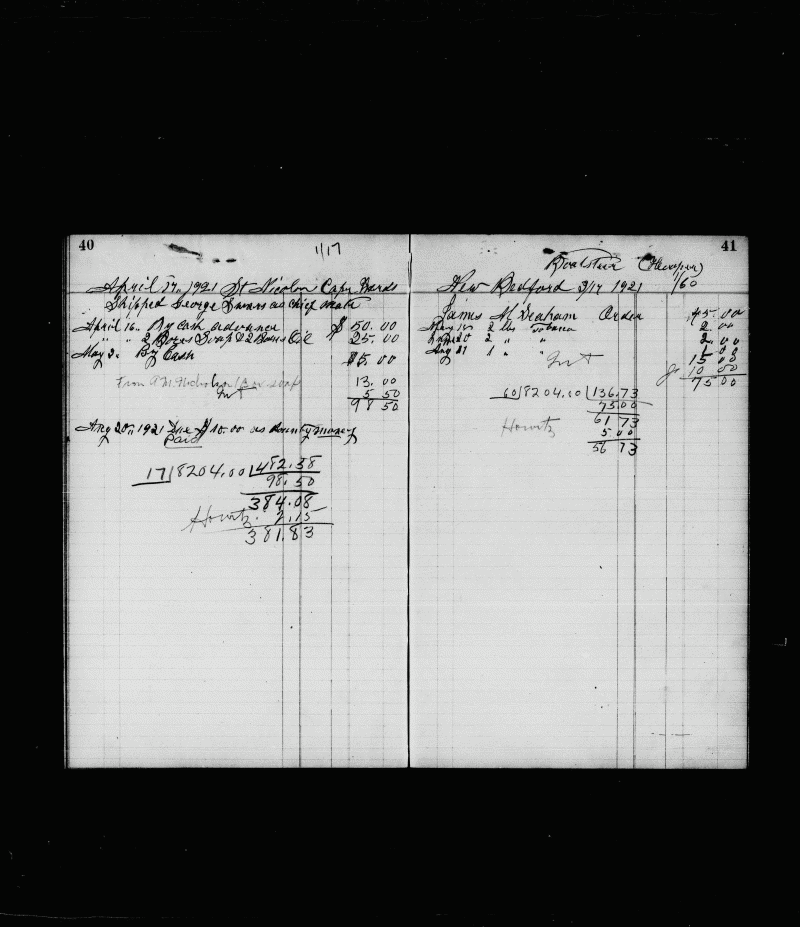 40
1/17
April 17, 1921 St Nicolas Cape Verds
Shipped George as Chief Mate
April 16. By Cash advance $ 50.00
" " 2 Boxes Soap & 2 Boxes Oil 25.00
May 3. By Cash $5.00
From A. M. Nicholson 13.00
Int 5 50
98 50
Aug 20, 1921 Due $10.00 as bounty money
Paid
17)8204.00(482.58
98.50
384.08
Howitz. 2.15
381.83
41
Boatsteerer (Cooper)
New Bedford 3/17 1921 1/60
James M Graham Order 45.00
May 10 2 lbs Tobacco 2.00
20 2 " " 2.00
Aug 27 1 " " 1 00
Int 15 00
10 00
75 00
60)8204.00(136.73
75.00
61 73
Howitz 5 00
56 73